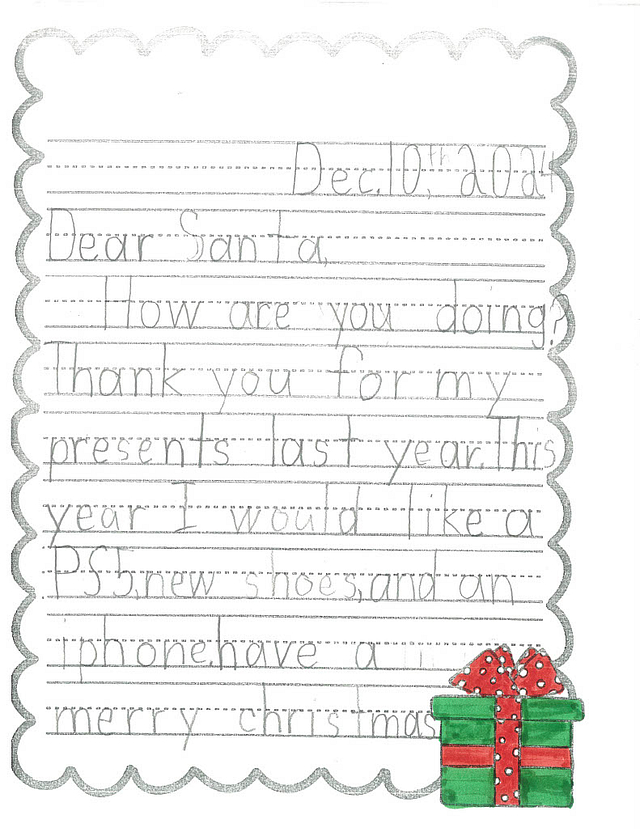 Dec. 10th, 2024
Dear Santa,
How are you doing?
Thank you for my
presents last year. This
year I would like a
PS5, new shoes, and an
iphone. have a
merry christmas